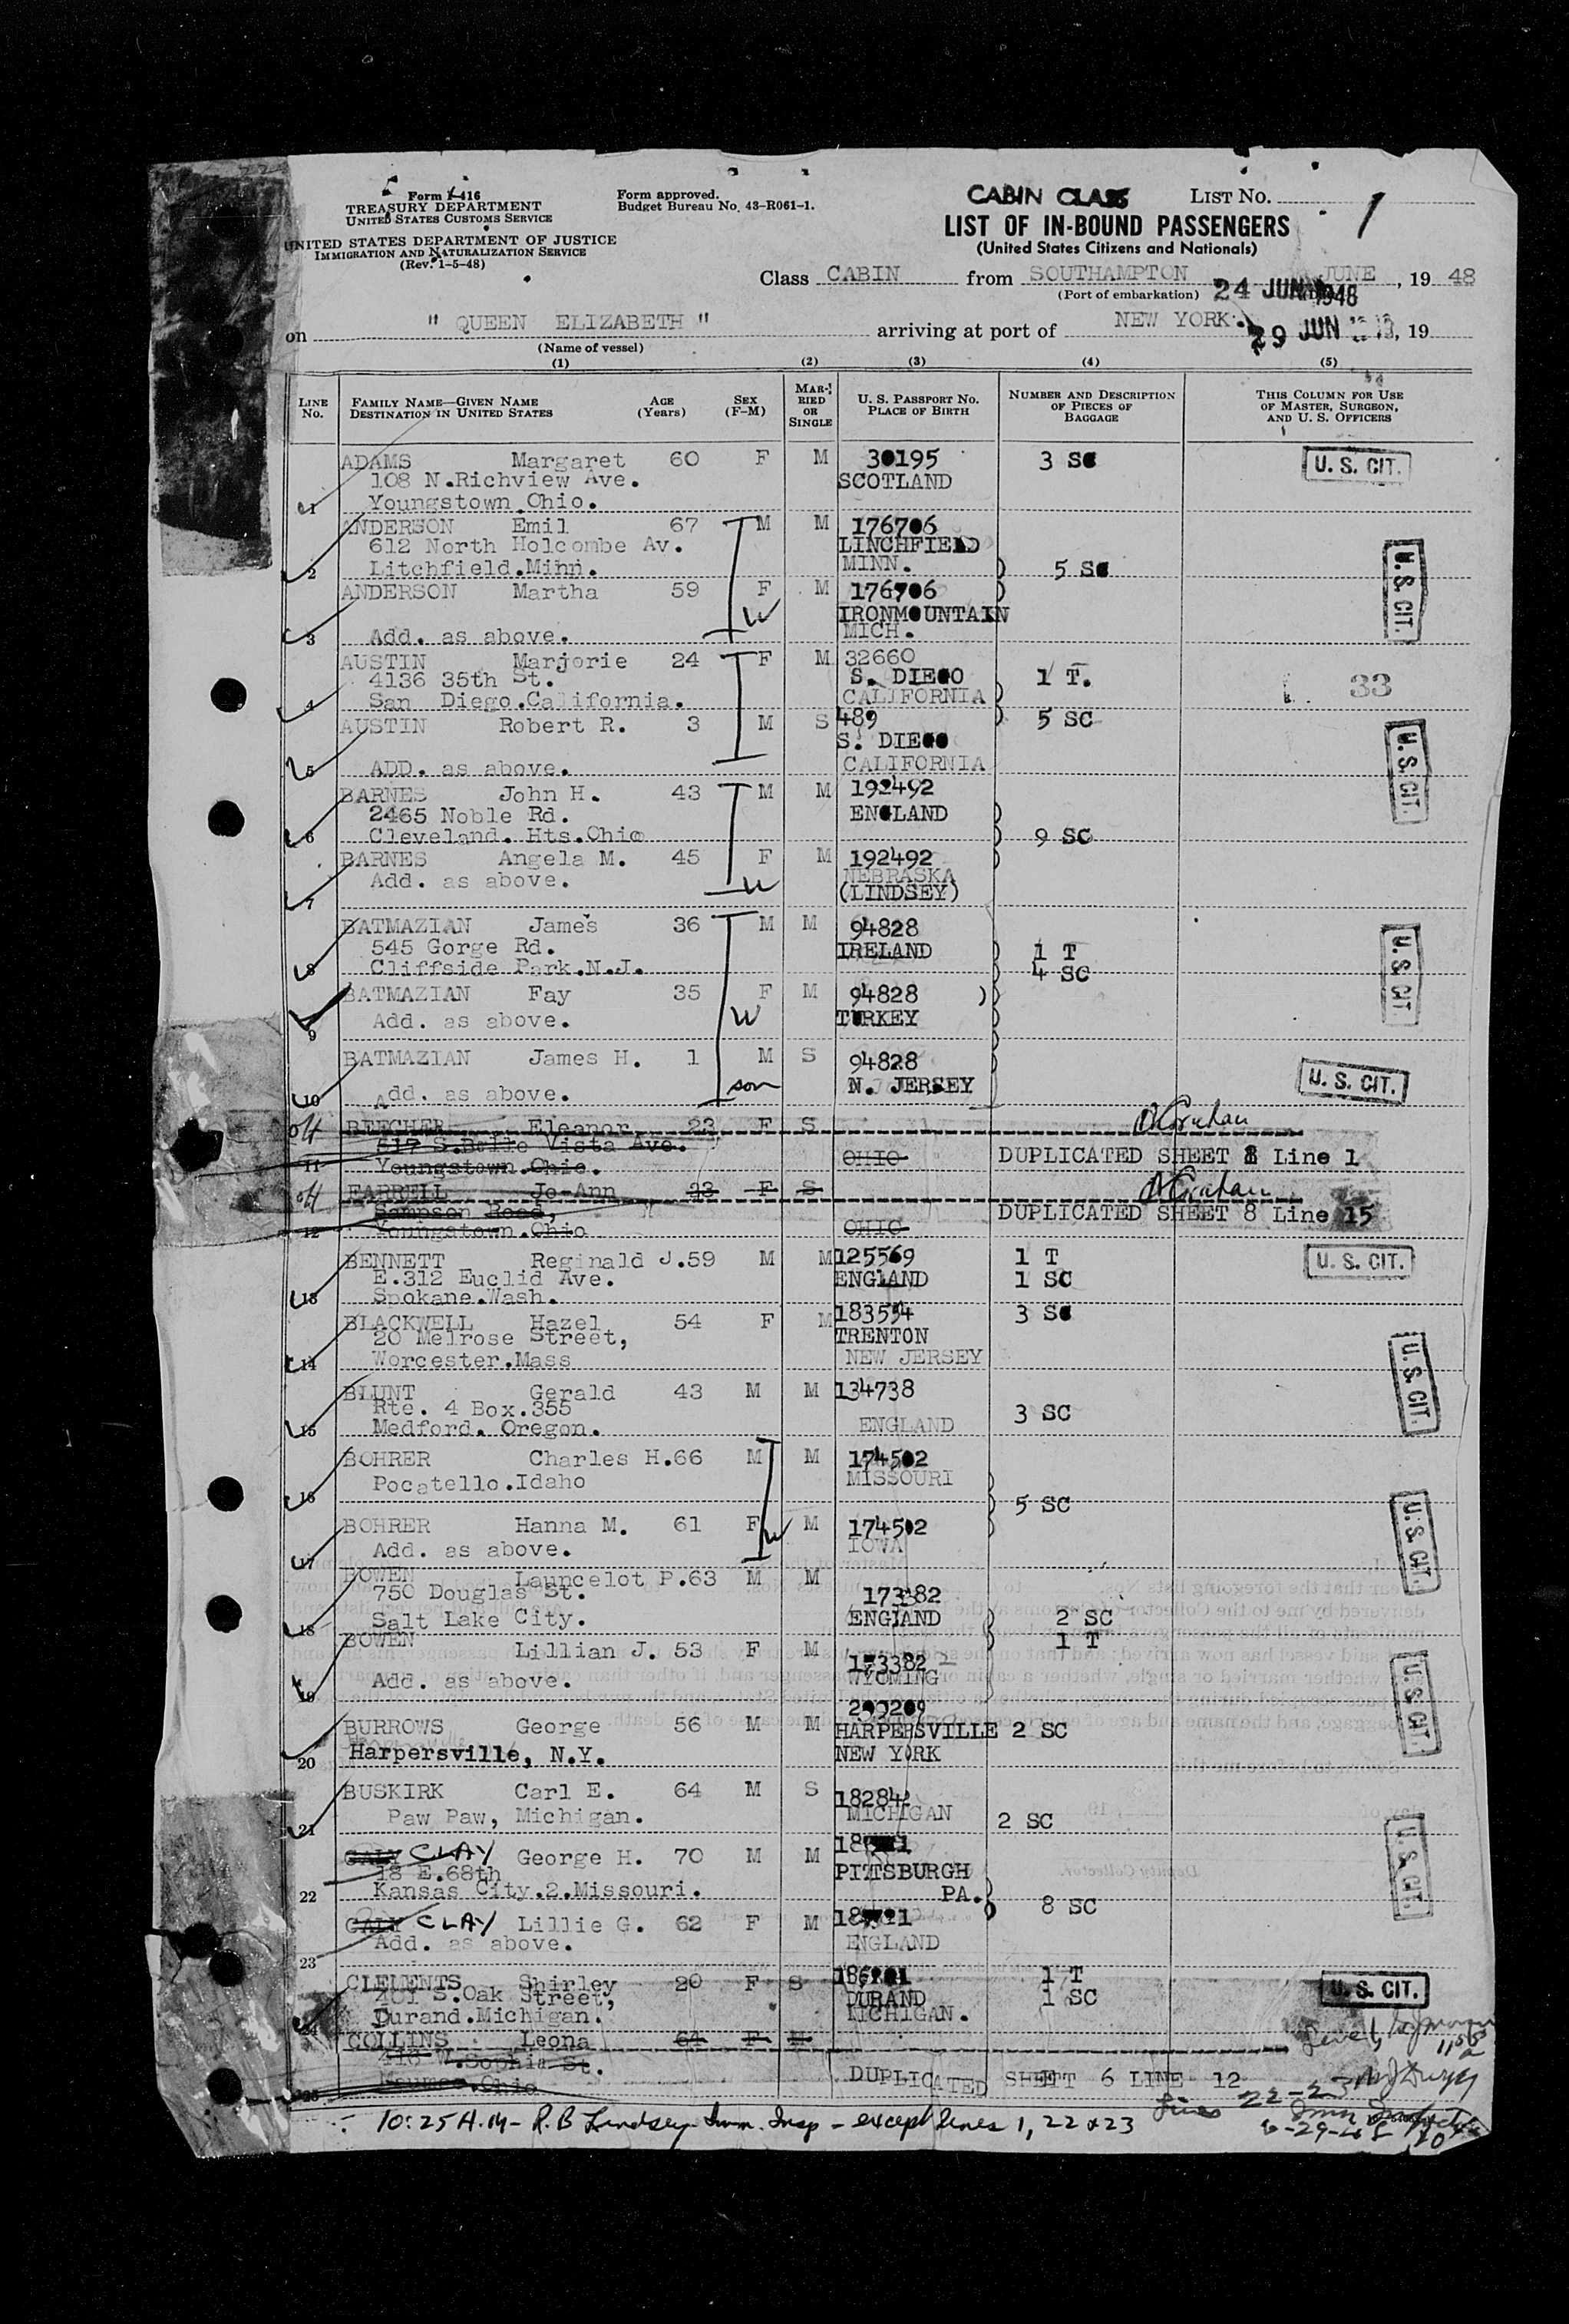 Form I-416
TREASURY DEPARTMENT
UNITED STATES CUSTOMS SERVICE
UNITED STATES DEPARTMENT OF JUSTICE
IMMIGRATION AND NATURALIZATION SERVICE
(Rev. 1-5-48)
Form approved.
Budget Bureau No. 43-R061-1.
CABIN CLASS LIST No. 1
LIST OF IN-BOUND PASSENGERS
(United States Citizens and Nationals)
Class CABIN from SOUTHAMPTON JUNE, 19 48
(Port of embarkation) 24 JUN 1948
on " QUEEN ELIZABETH " arriving at port of NEW YORK. 29 JUN, 19
(Name of vessel)
(1) (2) (3) (4) (5)
LINE No. FAMILY NAME—GIVEN NAME DESTINATION IN UNITED STATES AGE (Years) SEX (F-M) MARRIED OR SINGLE U. S. PASSPORT No. PLACE OF BIRTH NUMBER AND DESCRIPTION OF PIECES OF BAGGAGE THIS COLUMN FOR USE OF MASTER, SURGEON, AND U. S. OFFICERS
ADAMS Margaret 60 F M 30195 3 SC U. S. CIT.
108 N.Richview Ave. SCOTLAND
1 Youngstown.Ohio.
ANDERSON Emil 67 M M 176706
612 North Holcombe Av. LINCHFIELD
2 Litchfield.Minn. MINN. 5 SC U. S. CIT.
ANDERSON Martha 59 F M 176706
W IRONMOUNTAIN
3 Add. as above. MICH.
AUSTIN Marjorie 24 F M 32660
4136 35th St. S. DIEGO 1 T. 33
4 San Diego.California. CALIFORNIA
AUSTIN Robert R. 3 M S 489 5 SC
S. DIEGO U. S. CIT.
5 ADD. as above. CALIFORNIA
BARNES John H. 43 M M 192492
2465 Noble Rd. ENGLAND
6 Cleveland. Hts.Ohio 9 SC
BARNES Angela M. 45 F M 192492
Add. as above. NEBRASKA
7 W (LINDSEY)
BATMAZIAN James 36 M M 94828
545 Gorge Rd. IRELAND 1 T U. S. CIT.
8 Cliffside Park.N.J. 4 SC
BATMAZIAN Fay 35 F M 94828
9 Add. as above. W TURKEY
BATMAZIAN James H. 1 M S 94828
10 Add. as above. son N. JERSEY U. S. CIT.
off BEECHER Eleanor 23 F S
617 S.Belle Vista Ave.
11 Youngstown.Ohio. OHIO DUPLICATED SHEET 8 Line 1
off FARRELL Jo-Ann 23 F S
Sampson Road, DUPLICATED SHEET 8 Line 15
12 Youngstown.Ohio OHIO
BENNETT Reginald J. 59 M M 125569 1 T U. S. CIT.
E.312 Euclid Ave. ENGLAND 1 SC
13 Spokane.Wash.
BLACKWELL Hazel 54 F M 183554 3 SC
20 Melrose Street, TRENTON
14 Worcester.Mass NEW JERSEY U. S. CIT.
BLUNT Gerald 43 M M 134738
Rte. 4 Box.355 3 SC
15 Medford. Oregon. ENGLAND
BOHRER Charles H. 66 M M 174502
Pocatello.Idaho MISSOURI
16 5 SC
BOHRER Hanna M. 61 F W M 174502 U. S. CIT.
17 Add. as above. IOWA
BOWEN Launcelot P. 63 M M
750 Douglas St. 173382
18 Salt Lake City. ENGLAND 2 SC
BOWEN 1 T
Lillian J. 53 F M 173382
19 Add. as above. WYOMING U. S. CIT.
BURROWS George 56 M M HARPERSVILLE 2 SC
20 Harpersville, N.Y. NEW YORK
BUSKIRK Carl E. 64 M S 18284
21 Paw Paw, Michigan. MICHIGAN 2 SC
CLAY George H. 70 M M
18 E.68th PITTSBURGH U. S. CIT.
22 Kansas City.2.Missouri. PA. 8 SC
CLAY Lillie G. 62 F M
23 Add. as above. ENGLAND
CLEMENTS Shirley 20 F S 1 T
401 S.Oak Street, DURAND 1 SC U. S. CIT.
24 Durand.Michigan. MICHIGAN.
COLLINS Leona 64 F M
418 W.Sophia St.
25 Maumee.Ohio DUPLICATED SHEET 6 LINE 12
Lines 22-23
10:25 A.M - R. B Lindsey Imm. Insp - except lines 1, 22 & 23
6-29-48